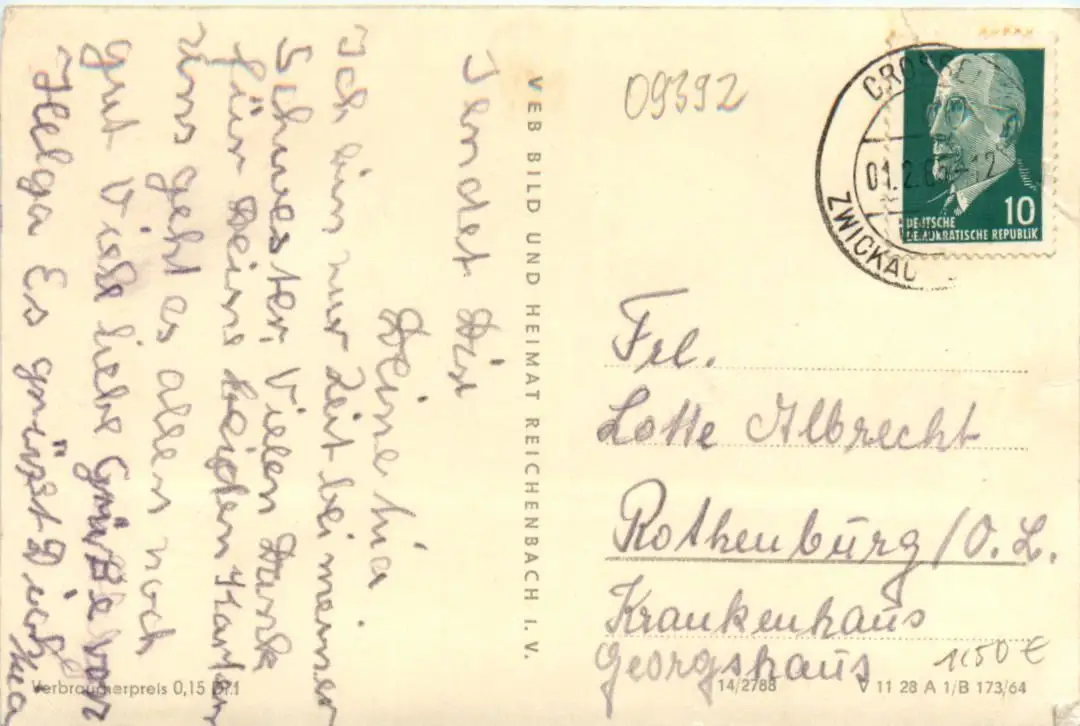 Sendet Dir
Deine
Ich bin zur Zeit bei meiner
Schwester, Vielen Dank
für Deine beiden Karten
uns geht es allen noch
gut Viele liebe Grüße von
Helga Es grüßt Dich
VEB BILD UND HEIMAT REICHENBACH I. V.
09392
ZWICKAU
DEUTSCHE
DEMOKRATISCHE REPUBLIK
10
Frl.
Lotte Albrecht
Rothenburg/O.L.
Krankenhaus
Georgshaus
1,50 €
Verbraucherpreis 0,15 DM
14/2788
V 11 28 A 1/B 173/64